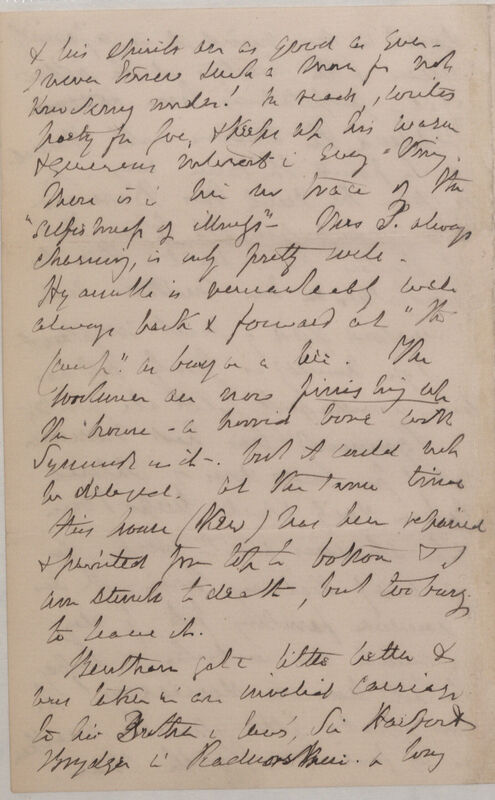 & his spirits are as good as ever -
I never knew such a man for not
knocking under! he reads, writes
poetry for love, & keeps up his warm
& generous interest in every-thing.
There is in him no trace of the
"selfishness of illness" - Mrs P. always
charming, is only pretty well -
Hyacinth is remarkably well
always back & forward at "the
Camp". as busy as a bee. The
workmen are now finishing up
the house - a horrid bore with
Symonds in it -. but it could not
be delayed. at the same time
this house (Kew) has been repaired
& painted from top to bottom & I
am stunk to death, but too busy
to leave it.
Bentham got a little better &
was taken in an invalid carriage
to his Brother in laws, Sir Harford
Brydges in Radnorshire. a long